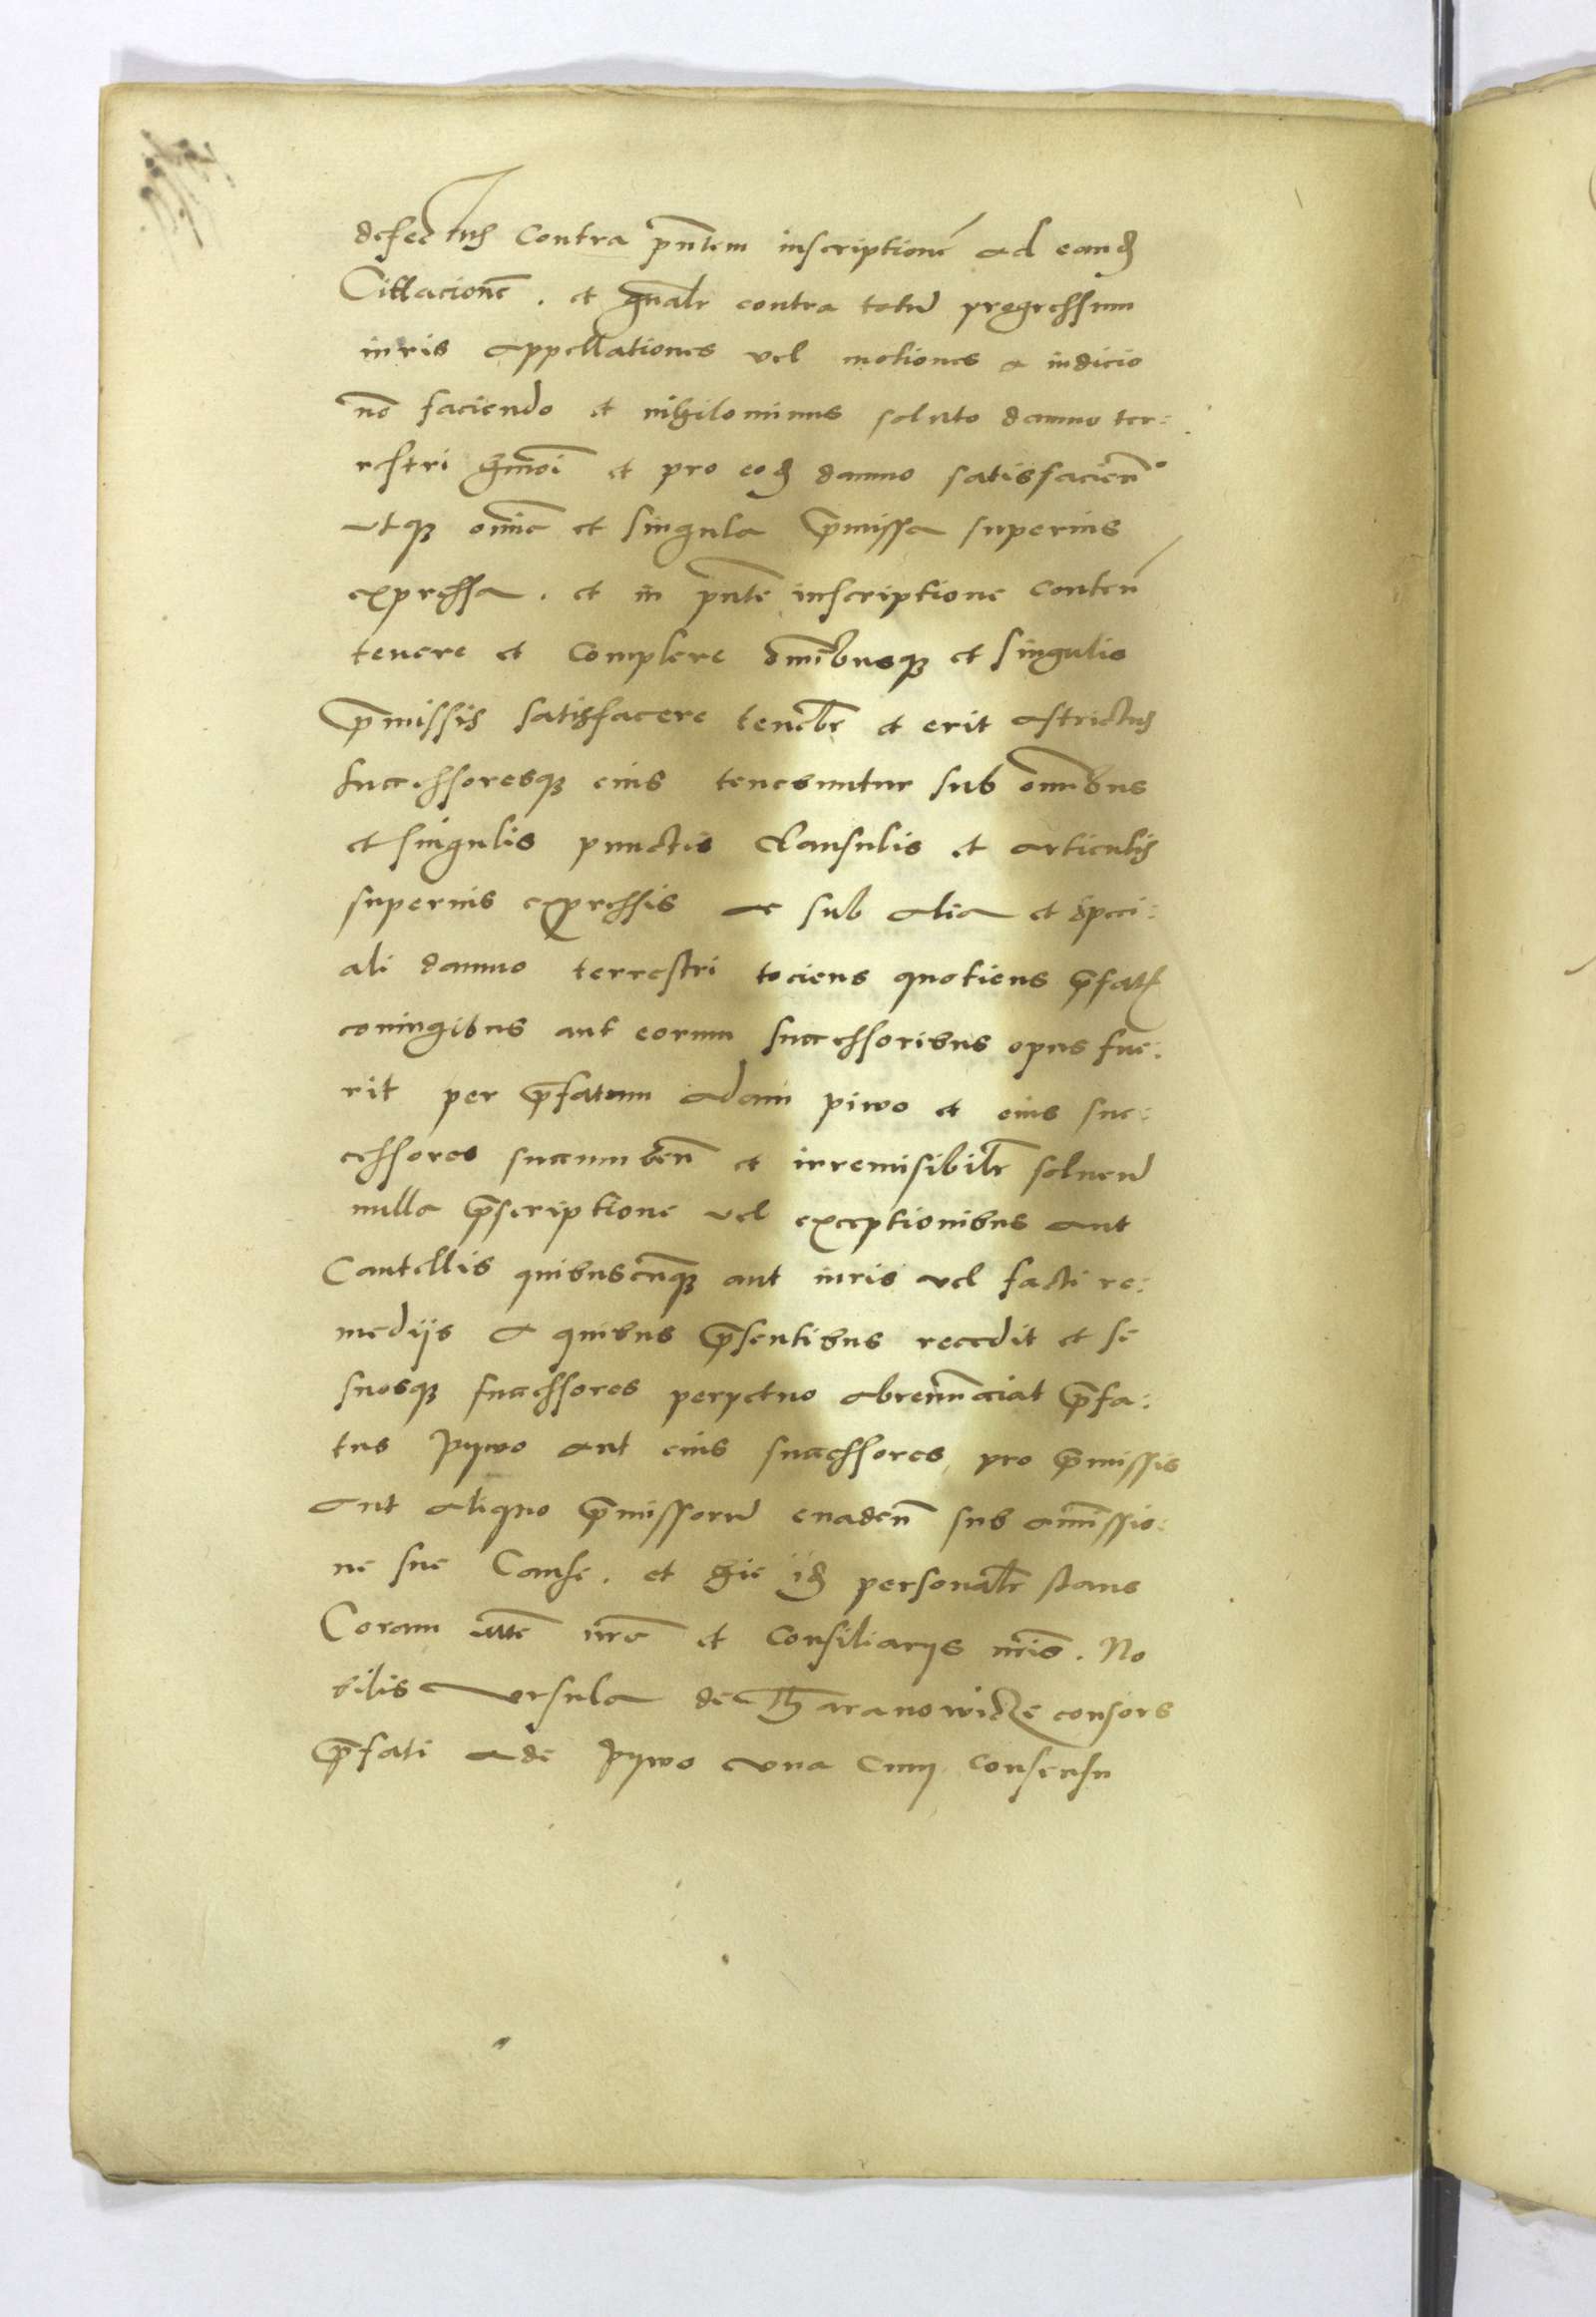 defectus Contra pñtem inscriptionẽ ad eand
Cittacionẽ. et gñalr contra totũ progressum
iuris appellationes vel motiones a iudicio
nõ faciendo et nihilominus soluto damno ter:
restri hmõi et pro eod damno satisfacien
utq omïa et singula p̃missa superius
expressa. et in pñte inscriptione conteñ
tenere et Complere õmibusq et singulis
p̃missis satisfacere tenebr et erit astrictus
successoresq eius tenebuntur sub omnibus
et singulis punctis Clausulis et articulis
superius expressis ac sub alia et speci:
ali damno terrestri tociens quotiens p̃fatis
coniugibus aut eorum successoribus opus fue:
rit per p̃fatum adam piwo et eius suc:
cessores succumbeñ et irremisibilr soluend
nulla p̃scriptione vel exceptionibus aut
Cautellis quibuscunq aut iuris vel facti re:
medijs a quibus p̃sentibus recedit et se
suosq successores perpetuo abrenunciat p̃fa:
tus Pywo aut eius successores pro p̃missis
aut aliquo p̃missorũ euadeñ sub amissio:
ne sue Cause. et hic id personalr stans
Coram nr̃e et Consiliarys nr̃is. No
bilis vrsula de Tharanowicze consors
p̃fati ade Pywo vna Cum consensu